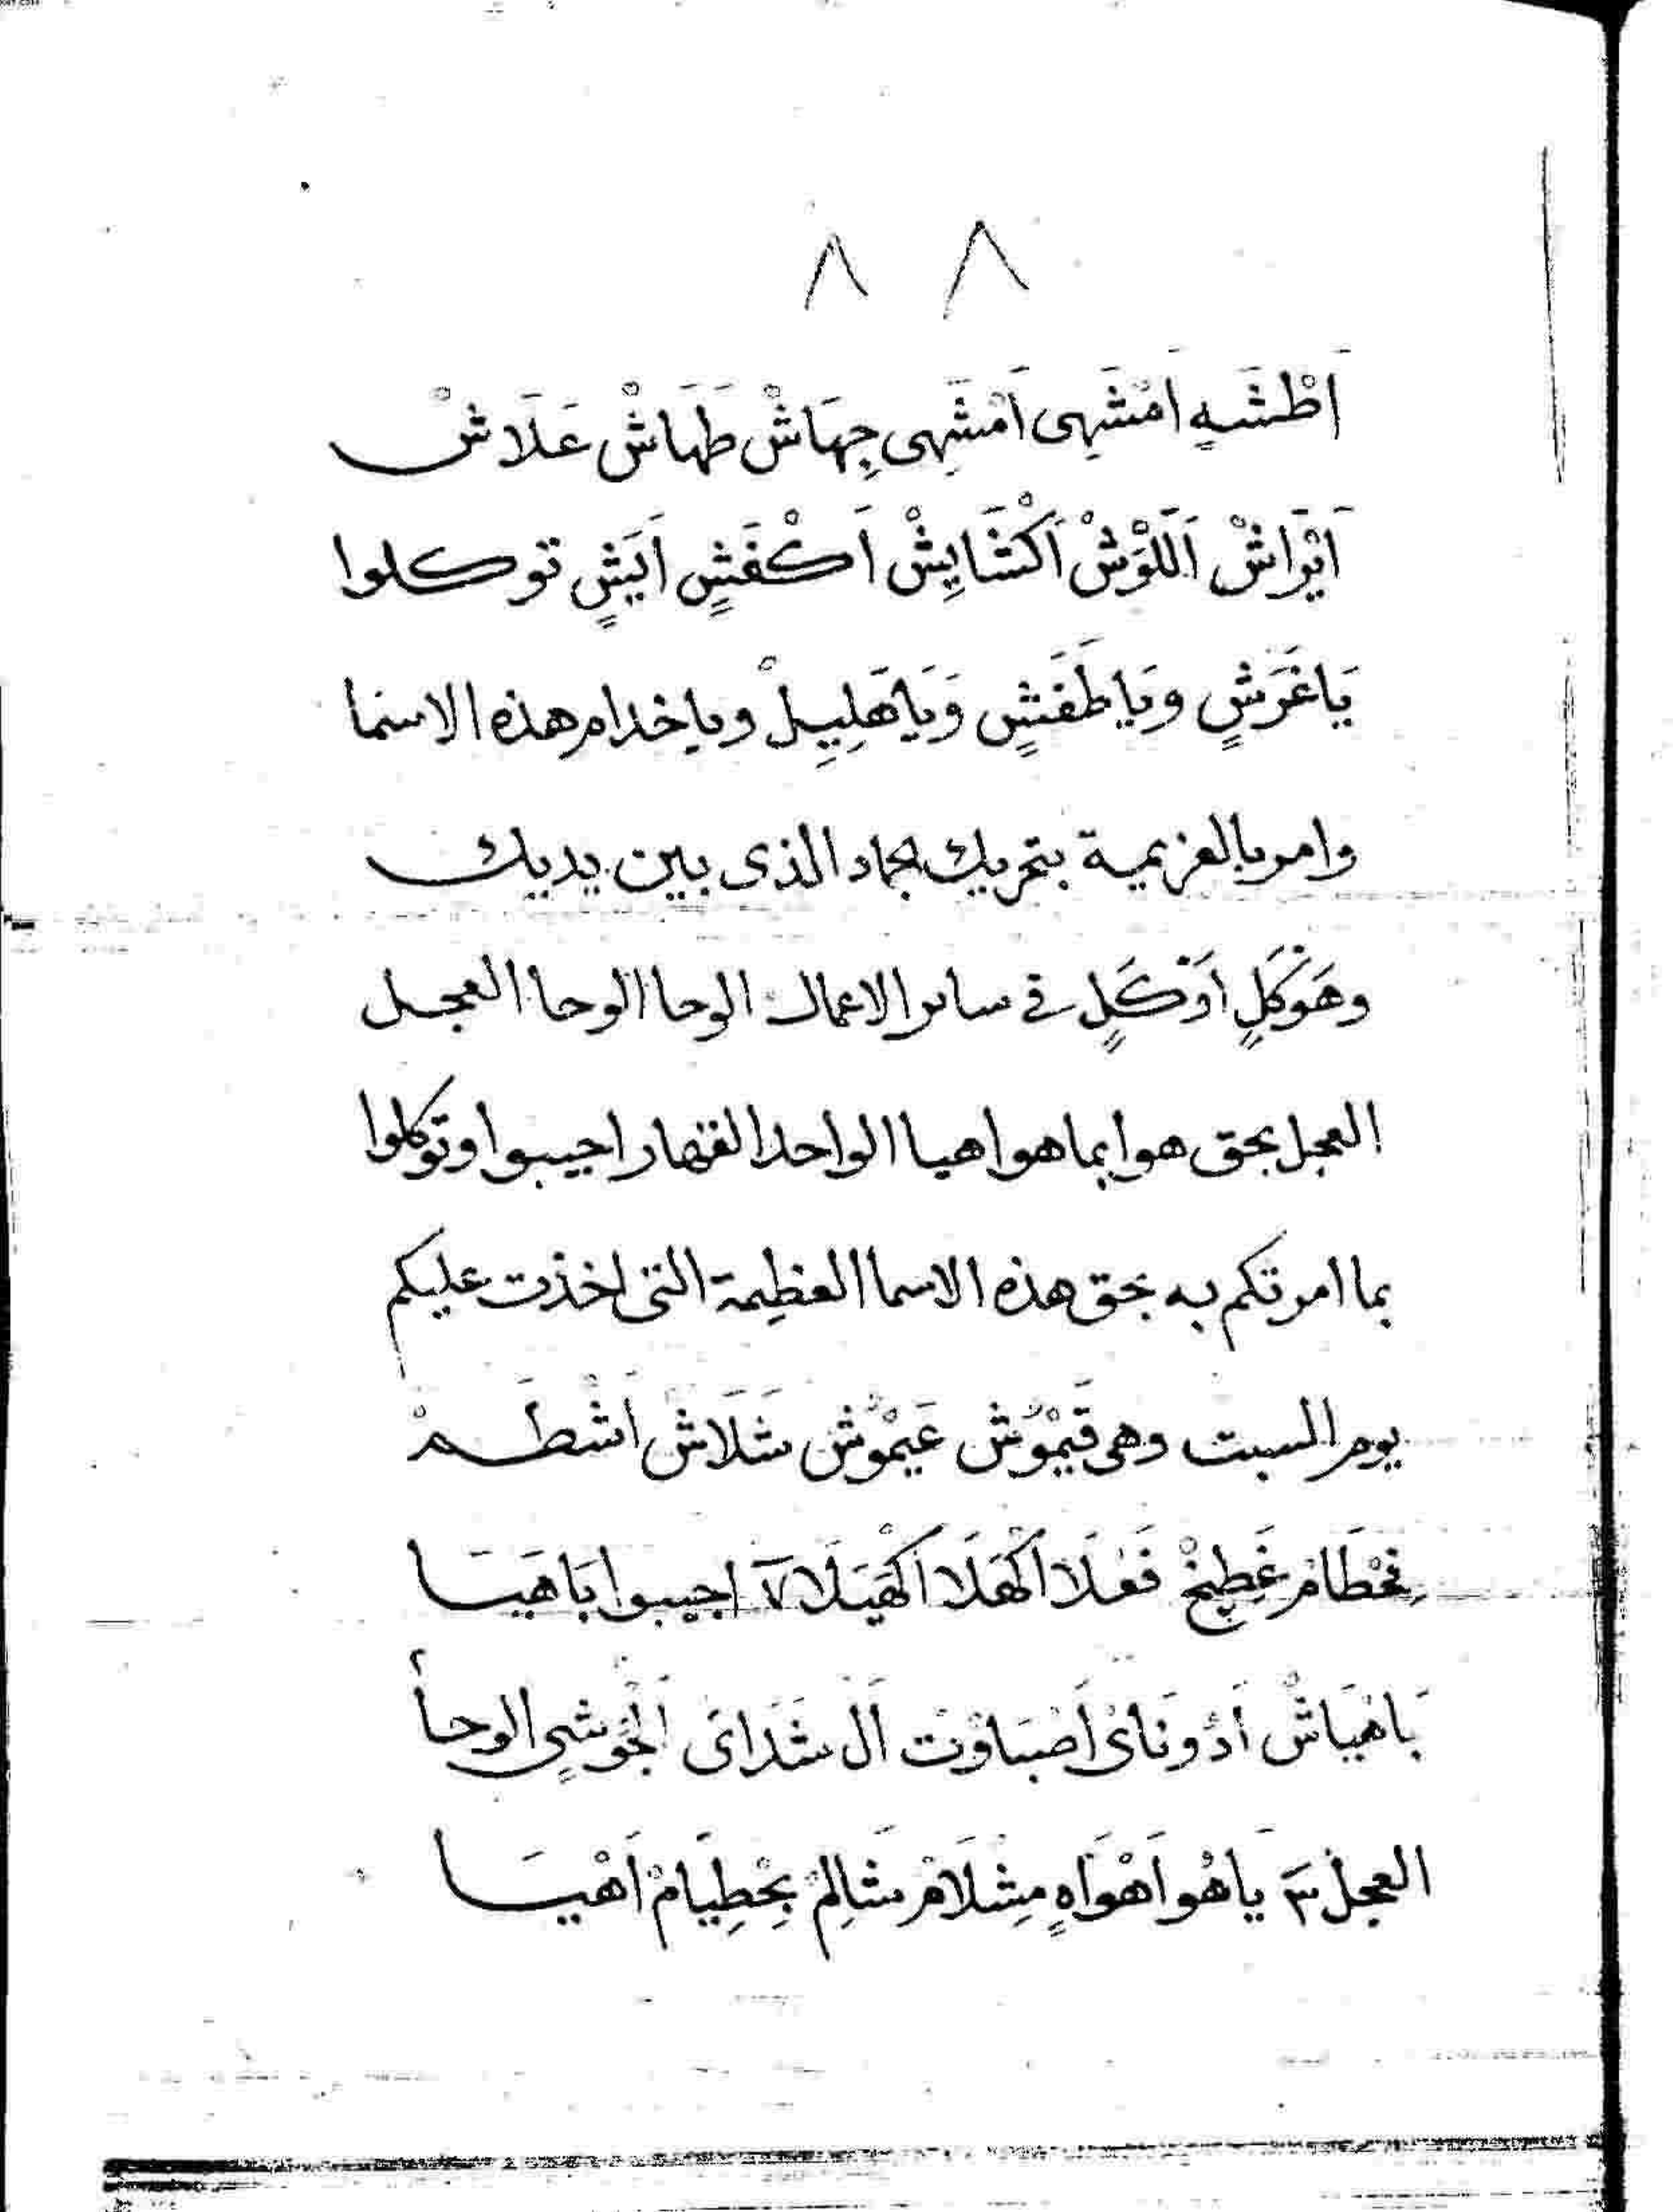 ٨٨
اَطْشَهٍ اَمْشَهِى اَمْشَهِى جِهَاشْ طَهَاشْ عَلَاشْ
اَيْرَاشْ اَللَّوْشْ اَكْشَايِشْ اَكْفَشٍ اَيَشٍ توكلوا
يَاغَرَشٍ وَيَا طَفَشٍ وَيَاهَلِيِلْ وياخدام هذه الاسما
وامر بالعزيمة بتحريك الجماد الذى بين يديك
وهَوْكَلٍ اَوْكَلٍ فى ساىر الاعمال الوحا الوحا العجل
العجل بحق هوا بماهوا هيا الواحد القهار اجيبوا وتوكلوا
بما امرتكم به بحق هذه الاسما العظِيمة التى اخذت عليكم
يوم السبت وهى قَيْمُوْش عَيْمُوْش شَلَاش اَشْطَمْ
فِحْطَامْ غَطِيخْ فَعْلَا اَكْهَلَا اَكْهَيَلَا ٧ اجيبوا بَاهَيَا
بَاهْيَاشْ اَدُونَاىْ اَصْبَاوْت اَلْ شَدَاى اَلْجَوْشٍى الوحا
العجل ٣ يَا هُوا اَهْوَاهٍ مِشَلَامْ شَالِمْ بِحْطِيَامْ اَهْيَا